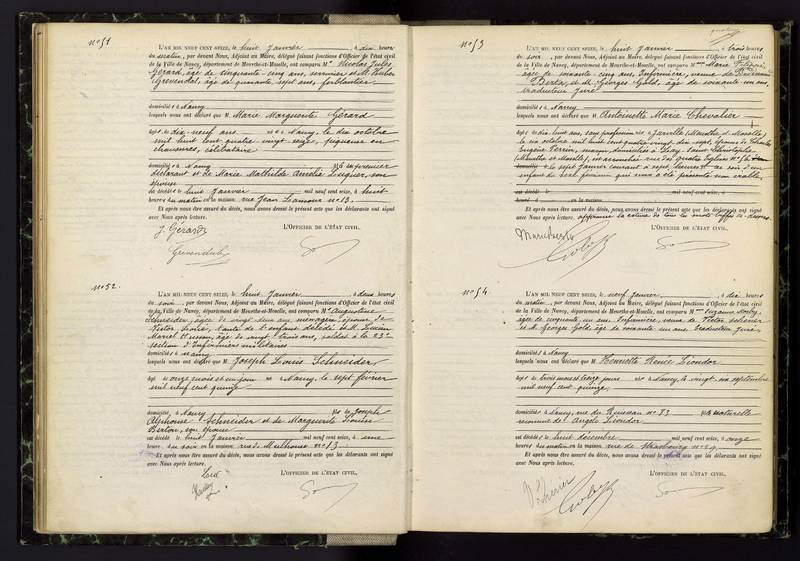 no 51
L'AN MIL NEUF CENT SEIZE, le huit Janvier, à dix heures
du matin, par devant Nous, Adjoint au Maire, délégué faisant fonctions d'Officier de l'état civil
de la Ville de Nancy, département de Meurthe-et-Moselle, ont comparu Mr Nicolas Jules
Gérard, âgé de cinquante-cinq ans, serrurier et M.
Grevendal, âgé de quarante sept ans, ferblantier
domicilié s à Nancy
lesquels nous ont déclaré que Marie Marguerite Gérard
âgée de dix neuf ans née à Nancy, le dix octobre
mil huit cent quatre vingt seize, piqueuse en
chaussures, célibataire
domiciliée à Nancy du premier
déclarant et de Marie Mathilde Amélie son
épouse
est décédée le huit Janvier mil neuf cent seize, à huit
heures du matin en la maison rue Jean Lamour no 13.
Et après nous être assuré du décès, nous avons dressé le présent acte que les déclarants ont signé
avec Nous après lecture.
J. Gérard L'OFFICIER DE L'ÉTAT CIVIL,
Grevendal
no 52.
L'AN MIL NEUF CENT SEIZE, le huit Janvier, à deux heures
du soir, par devant Nous, Adjoint au Maire, délégué faisant fonctions d'Officier de l'état civil
de la Ville de Nancy, département de Meurthe-et-Moselle, ont comparu Me Augustine
Schneider, âgée de vingt deux ans, ménagère épouse de
Victor tante de l'enfant décédé et M. Lucien
Marcel âgé de vingt trois ans, soldat à la 23e
section d'Infirmiers militaires
domicilié s à Nancy
lesquels nous ont déclaré que M. Joseph Louis Schneider
âgé de onze mois et un jour né à Nancy, le sept février
mil neuf cent quinze
domicilié à Nancy fils de Joseph
Alphonse Schneider et de Marguerite Louise
Berton, son épouse
est décédé le huit Janvier mil neuf cent seize, à une
heure du soir en la maison rue de Mulhouse no 13
Et après nous être assuré du décès, nous avons dressé le présent acte que les déclarants ont signé
avec Nous après lecture.
L'OFFICIER DE L'ÉTAT CIVIL,
no 53
L'AN MIL NEUF CENT SEIZE, le huit Janvier, à trois heures
du soir, par devant Nous, Adjoint au Maire, délégué faisant fonctions d'Officier de l'état civil
de la Ville de Nancy, département de Meurthe-et-Moselle, ont comparu Mme Marie
âgée de soixante cinq ans, Infirmière, veuve de
Berta, et M. Georges Gold, âgé de soixante un ans,
traducteur Juré
domicilié s à Nancy
lesquels nous ont déclaré que Antoinette Marie Chevalier
âgée de dix huit ans, sans profession née à Jarville (Meurthe et Moselle)
le six octobre mil huit cent quatre vingt dix sept, épouse de Charles
Eugène Perrin, maçon, domiciliés à Leay-Saint-Christophe
(Meurthe et Moselle), est accouchée rue des quatre Eglises no
le sept Janvier courant à sept heures du soir d'un
enfant du sexe féminin qui nous a été présenté non viable.
est décédé le mil neuf cent seize, à
heures en la maison
Et après nous être assuré du décès, nous avons dressé le présent acte que les déclarants ont signé
avec Nous après lecture. approuvé la rature de tous les mots biffés ci-dessus.
Marie Berta L'OFFICIER DE L'ÉTAT CIVIL,
no 54
L'AN MIL NEUF CENT SEIZE, le neuf Janvier, à dix heures
du matin, par devant Nous, Adjoint au Maire, délégué faisant fonctions d'Officier de l'état civil
de la Ville de Nancy, département de Meurthe-et-Moselle, ont comparu Mme Suzanne
âgée de cinquante un ans, Infirmière, veuve de Victor
et M. Georges Gold, âgé de soixante un ans, traducteur Juré
domicilié s à Nancy
lesquels nous ont déclaré que Henriette Renée Liondor
âgée de trois mois et treize jours née à Nancy, le vingt six septembre
mil neuf cent quinze,
domiciliée à Nancy, rue du Ruisseau no 83 fille naturelle
reconnue de Angèle Liondor
est décédée le huit décembre mil neuf cent seize, à onze
heures du matin en la maison rue de Strasbourg no
Et après nous être assuré du décès, nous avons dressé le présent acte que les déclarants ont signé
avec Nous après lecture.
L'OFFICIER DE L'ÉTAT CIVIL,